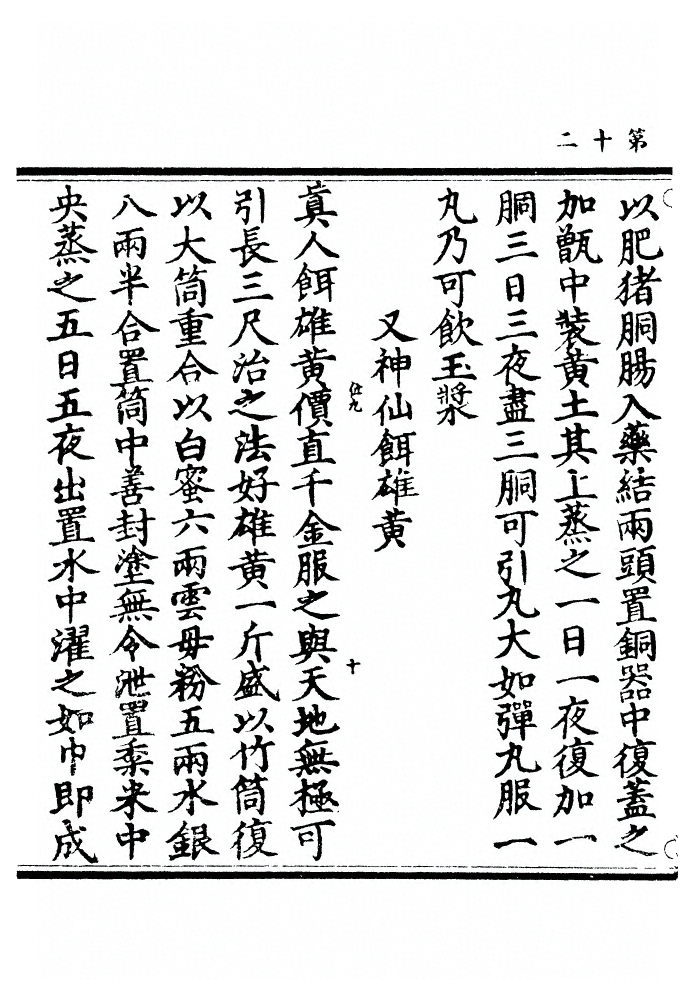 第十二
以肥猪胴腸入藥結兩頭置銅器中復蓋之
加甑中裝黃土其上蒸之一日一夜復加一
胴三日三夜盡三胴可引丸大如彈丸服一
丸乃可飲玉漿
又神仙餌雄黃
真人餌雄黃價直千金服之與天地無極可
伍九
十
引長三尺治之法好雄黃一斤盛以竹筒復
以大筒重合以白蜜六兩雲母粉五兩水銀
八兩半合置筒中善封塗無令泄置黍米中
央蒸之五日五夜出置水中濯之如巾即成